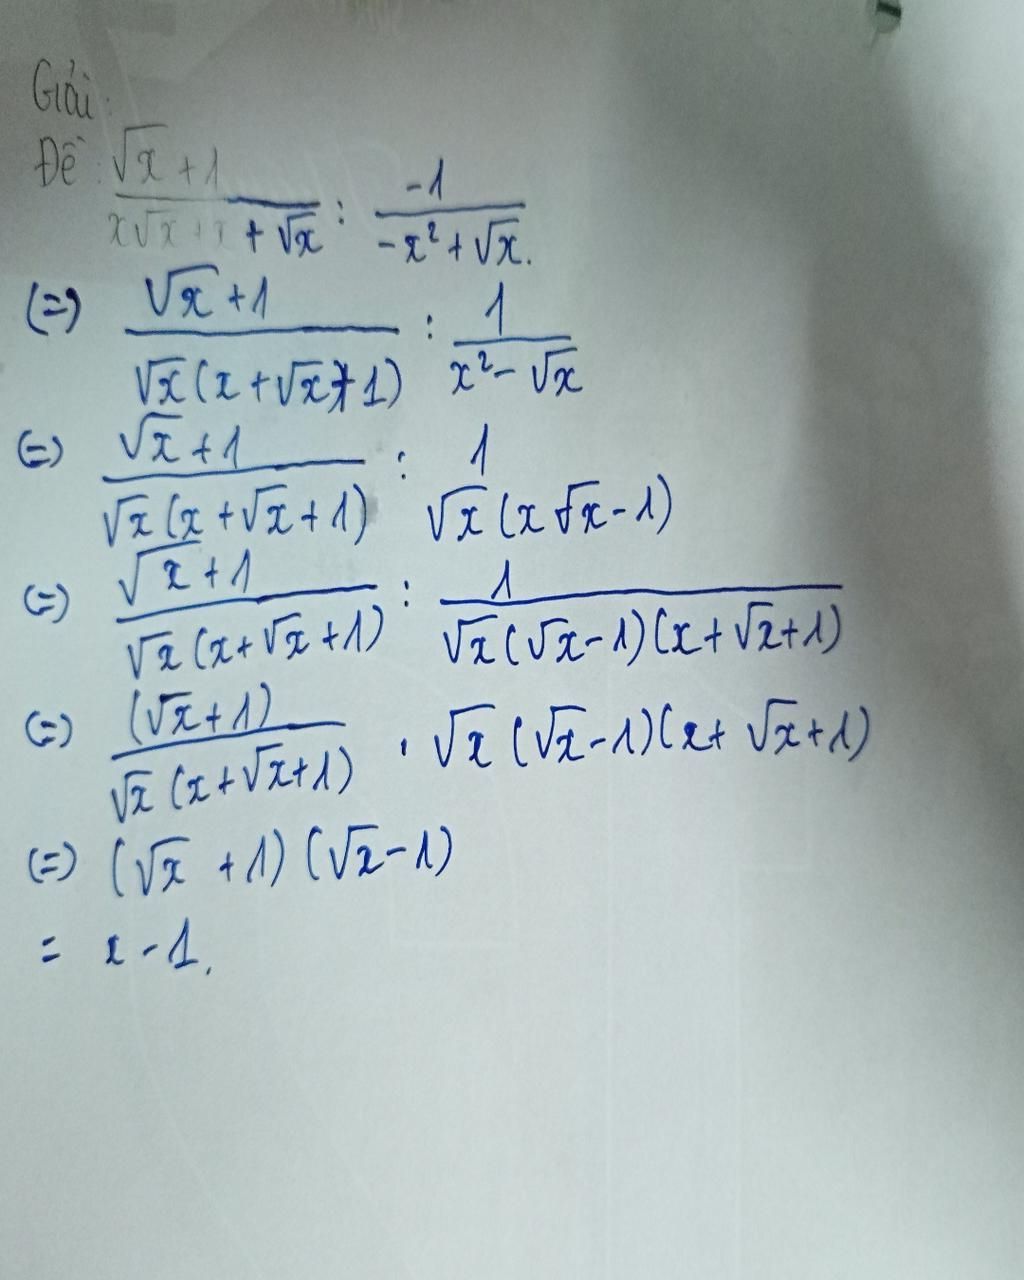 Giải:
Đề: (√x + 1)/(x√x + x + √x) : (-1)/(-x² + √x).
(=) (√x + 1)/(√x(x + √x + 1)) : 1/(x² - √x)
(=) (√x + 1)/(√x(x + √x + 1)) : 1 √x(x√x - 1)
(=) (√x + 1)/(√x(x + √x + 1)) : 1/(√x(√x - 1)(x + √x + 1))
(=) (√x + 1)/(√x(x + √x + 1)) . √x(√x - 1)(x + √x + 1)
(=) (√x + 1)(√x - 1)
= x - 1.